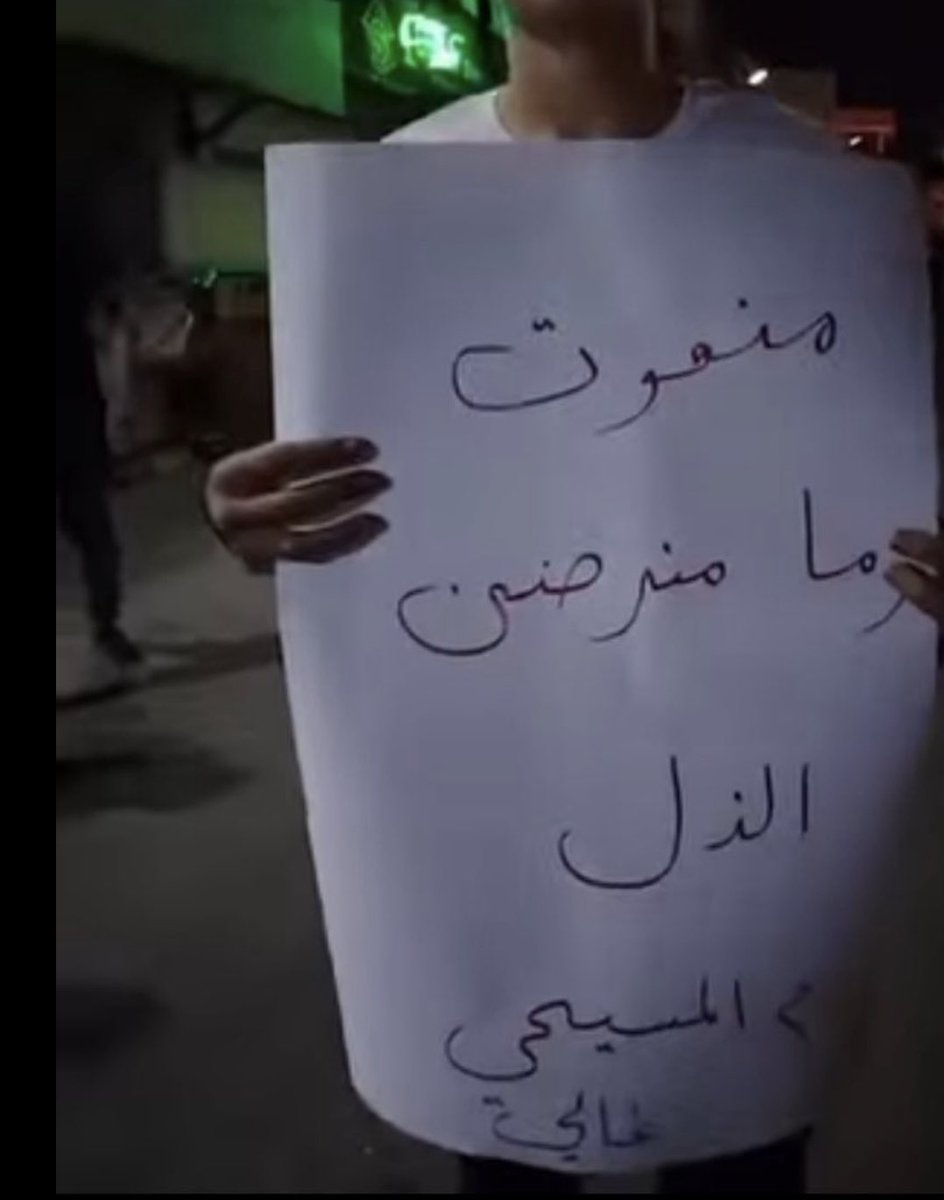 منموت
وما منرضى
الذل
دم المسيحي
غالي